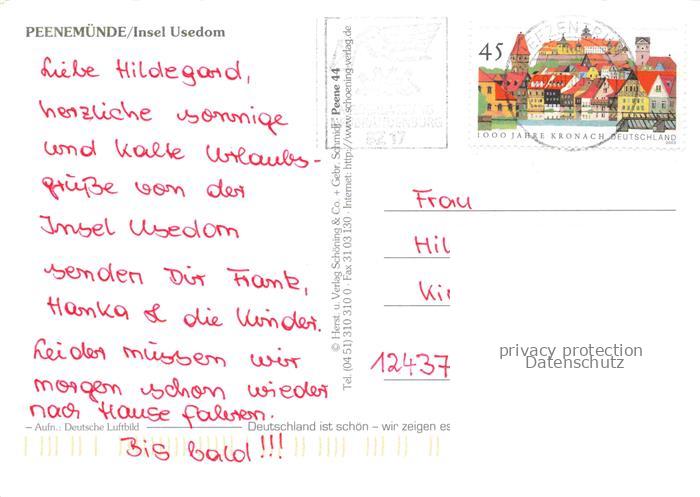 PEENEMÜNDE/Insel Usedom
Liebe Hildegard,
herzliche sonnige
und kalte Urlaubs-
grüße von der
Insel Usedom
senden Dir Frank,
Hanka & die Kinder.
Leider müssen wir
morgen schon wieder
nach Hause fahren.
Bis bald!!!
– Aufn.: Deutsche Luftbild
Deutschland ist schön – wir zeigen es
© Herst. u. Verlag Schöning & Co. + Gebr. Schmidt · Peene 44
Tel. (04 51) 310 310 0 · Fax 31 03 130 · Internet: http://www.schoening-verlag.de
45
1000 JAHRE KRONACH DEUTSCHLAND
2003
Frau
Hil
Kir
12437
privacy protection
Datenschutz